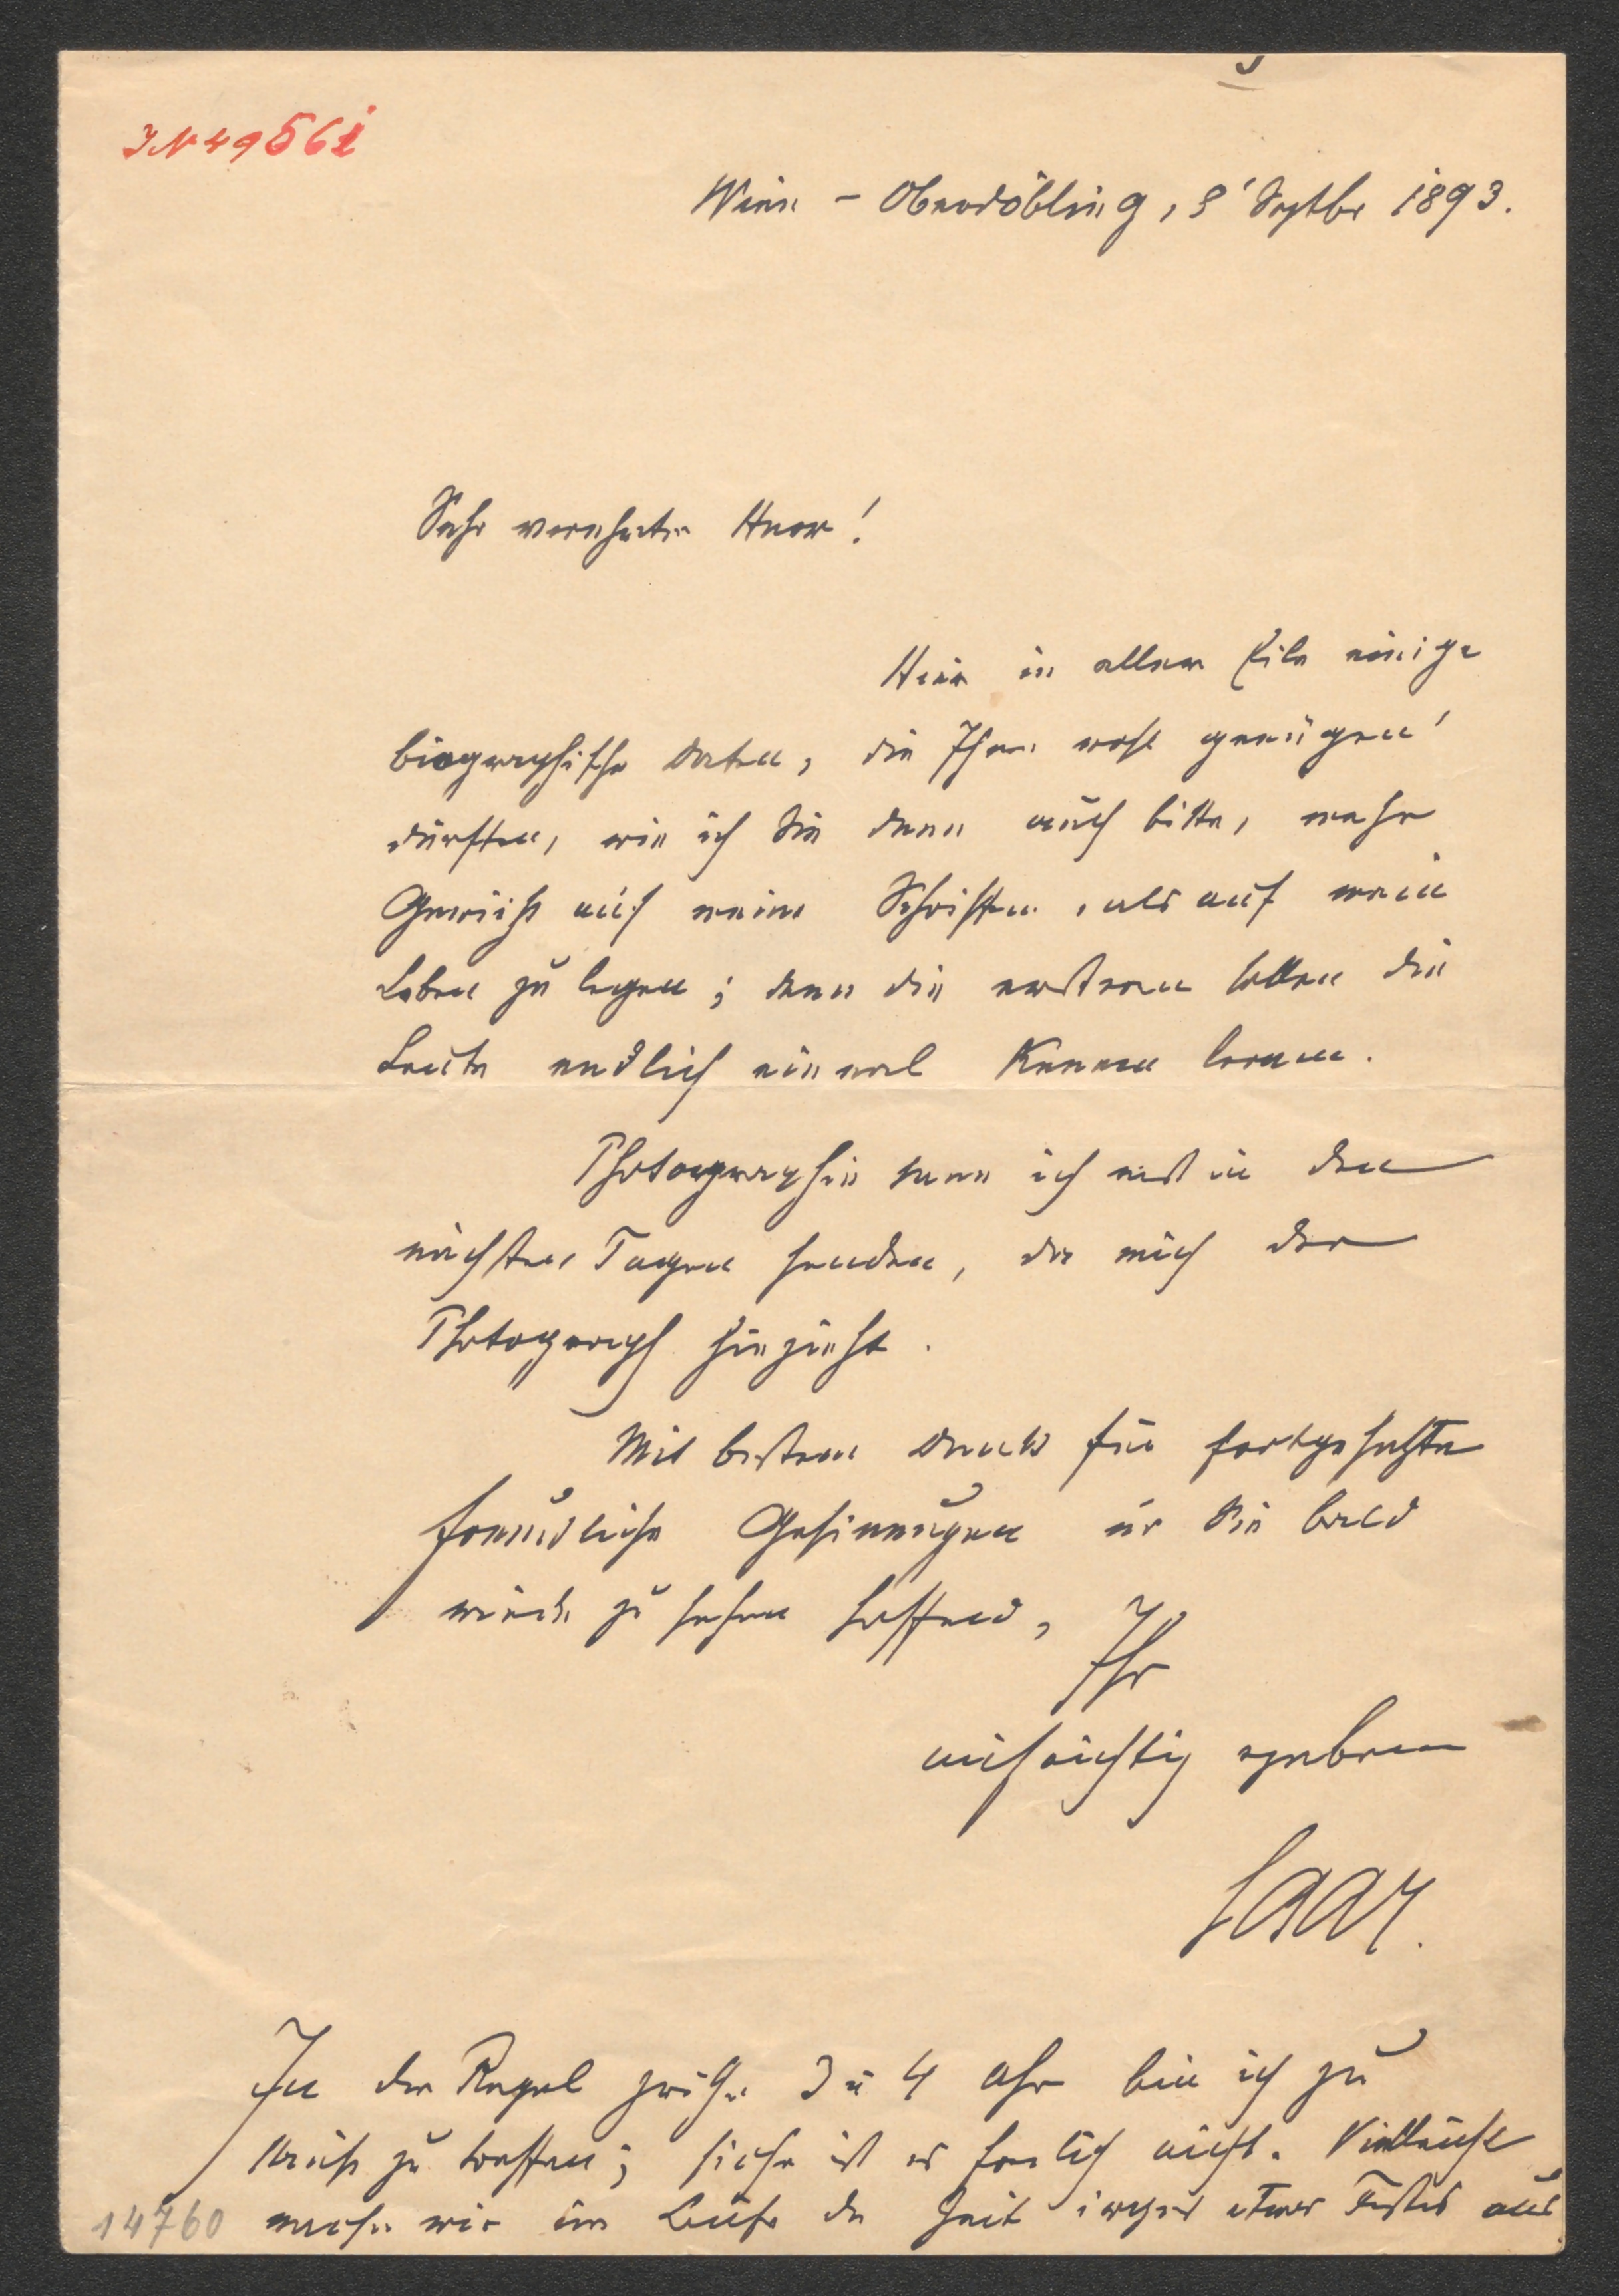 IN 49561
Wien – Oberdöbling, 8' Septbr 1893.
Sehr verehrter Herr!
Hier in aller Eile einige
biographische Daten, die Ihnen wohl genügen
dürften, wie ich Sie denn auch bitte, mehr
Gewicht auf meine Schriften, als auf mein
Leben zu legen; denn die ersteren sollen die
Leute endlich einmal kennen lernen.
Photographie kann ich erst in den
nächsten Tagen senden, da mich der
Photograph hinzieht.
Mit bestem Dank für fortgesetzte
freundliche Gesinnungen u Sie bald
wieder zu sehen hoffend,
Ihr
aufrichtig ergebener
Saar.
In der Regel zwischen 3 u 4 Uhr bin ich zu
Hause zu treffen; sicher ist es freilich nicht. Vielleicht
machen wir im Laufe der Zeit irgend etwas Festes aus
14760